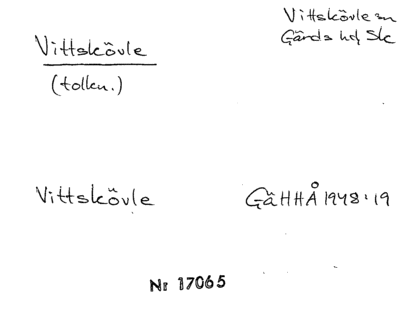 Vittskövle
Vittskövle sn
Gärds hd Sk
(tolkn.)
Vittskövle
GäHHÅ 1948:19
Nr 17065